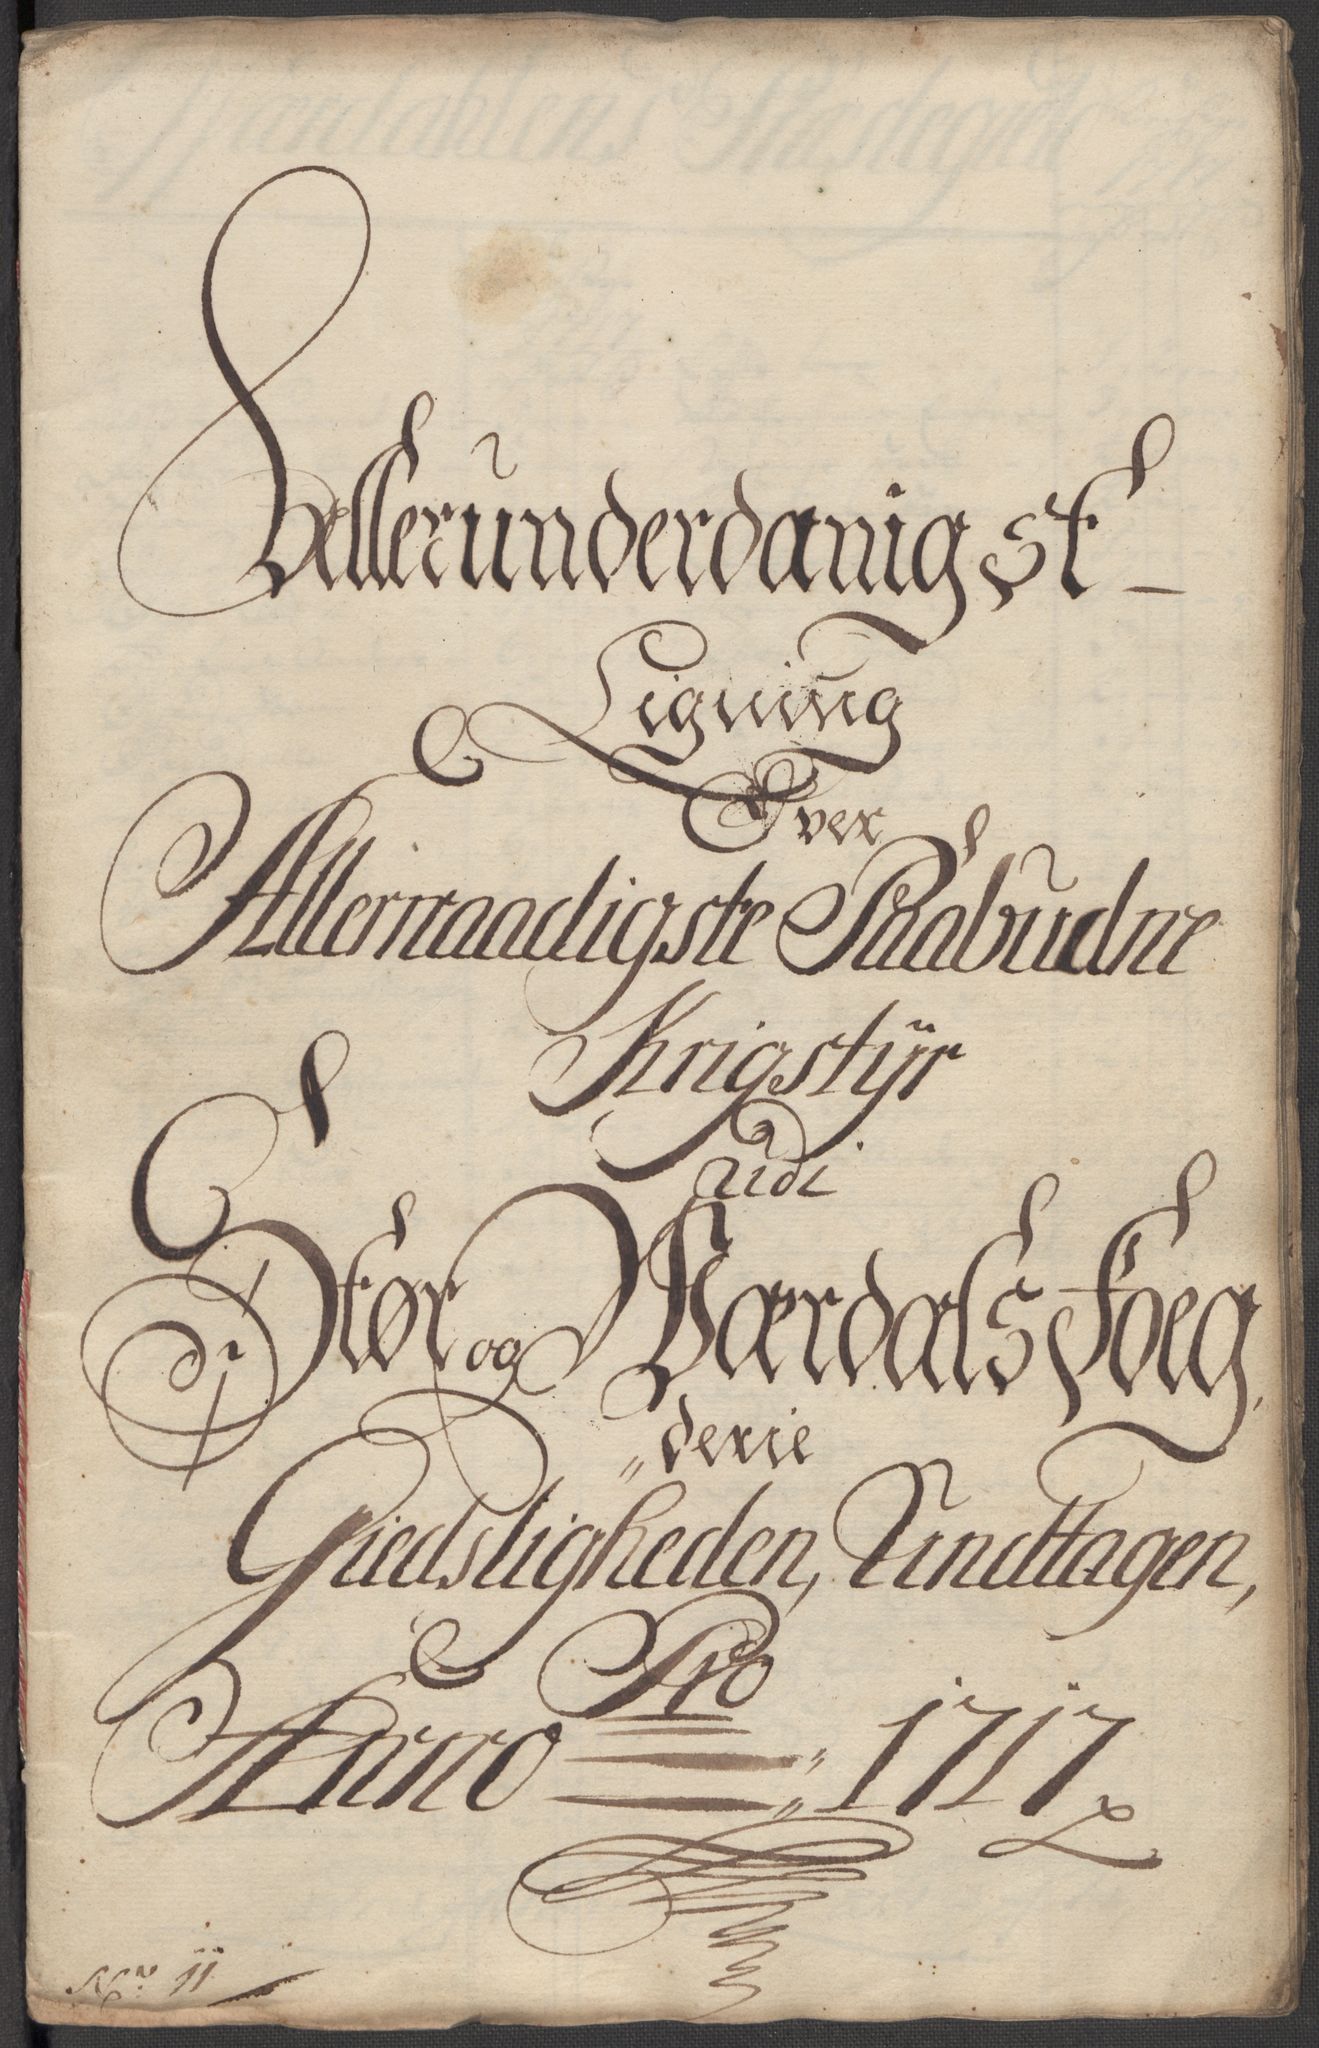 Allerunderdanigst
Ligning
Over
Allernaadigste Paabudne
Krigstÿr
udi
Stør og Værdals Foeg
„derie
Giedsligheden, Undtagen,
Pro
Anno „ 1717
No 11